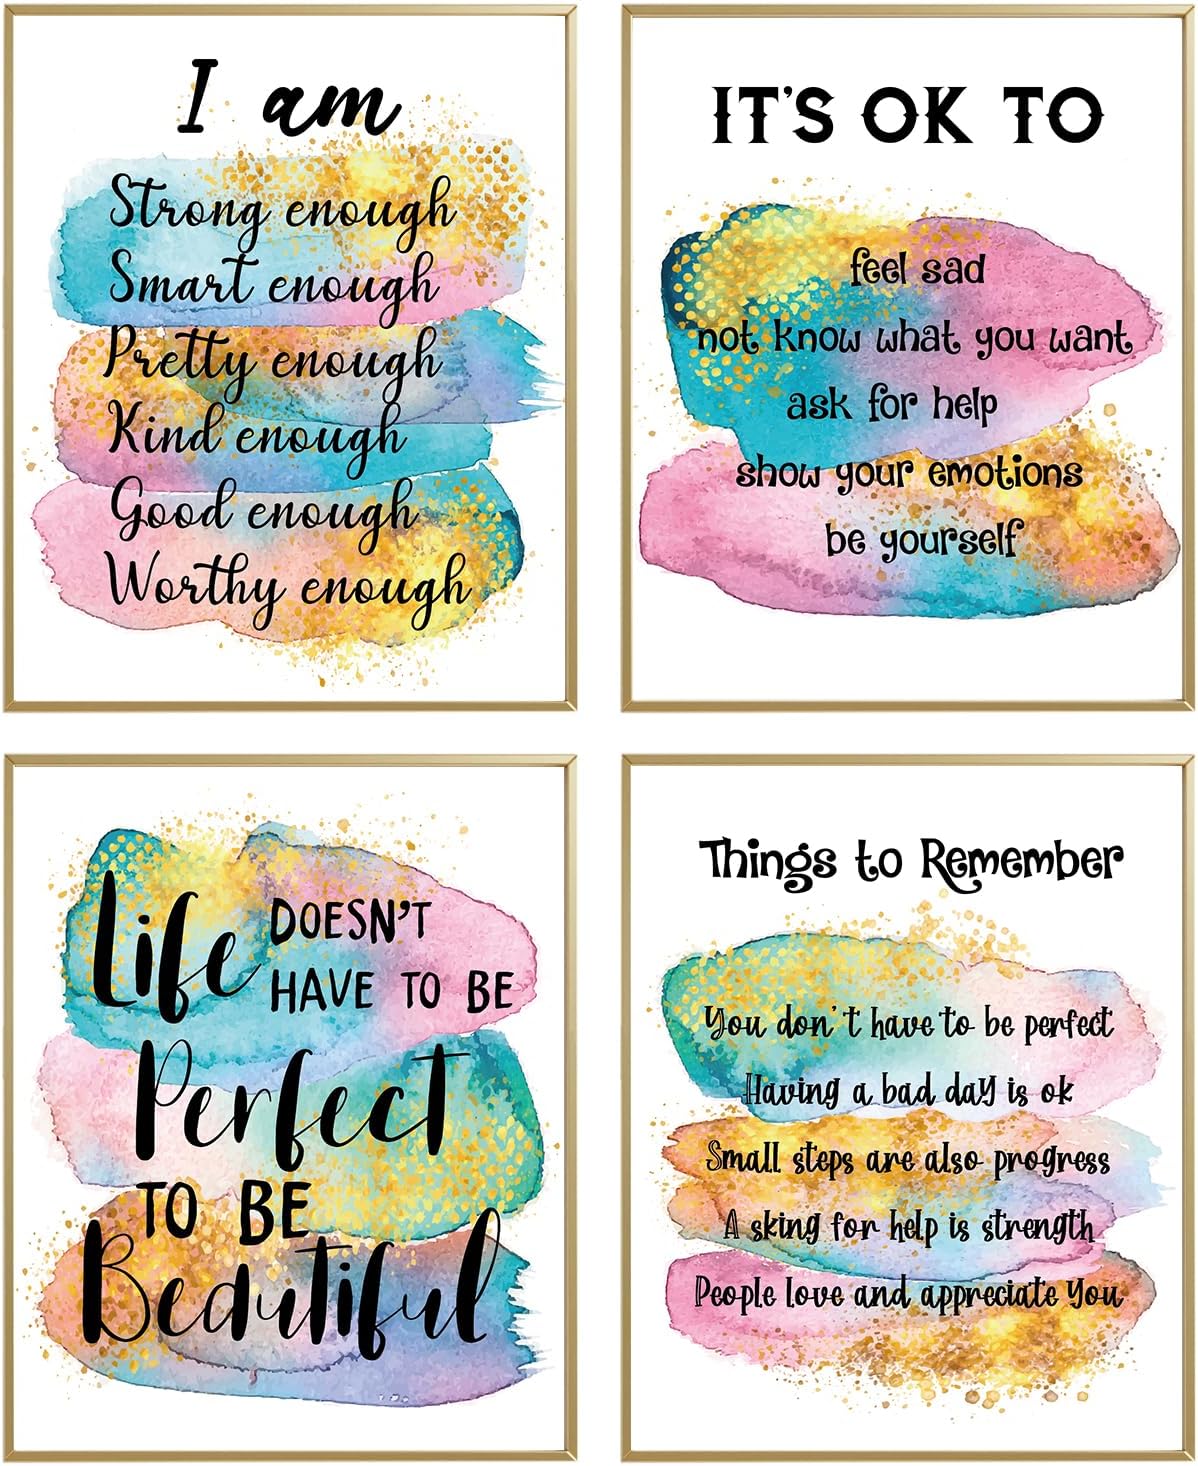 I am
Strong enough
Smart enough
Pretty enough
Kind enough
Good enough
Worthy enough
IT'S OK TO
feel sad
not know what you want
ask for help
show your emotions
be yourself
Life DOESN'T
HAVE TO BE
Perfect
TO BE
Beautiful
Things to Remember
You don't have to be perfect
Having a bad day is ok
Small steps are also progress
A sking for help is strength
People love and appreciate You